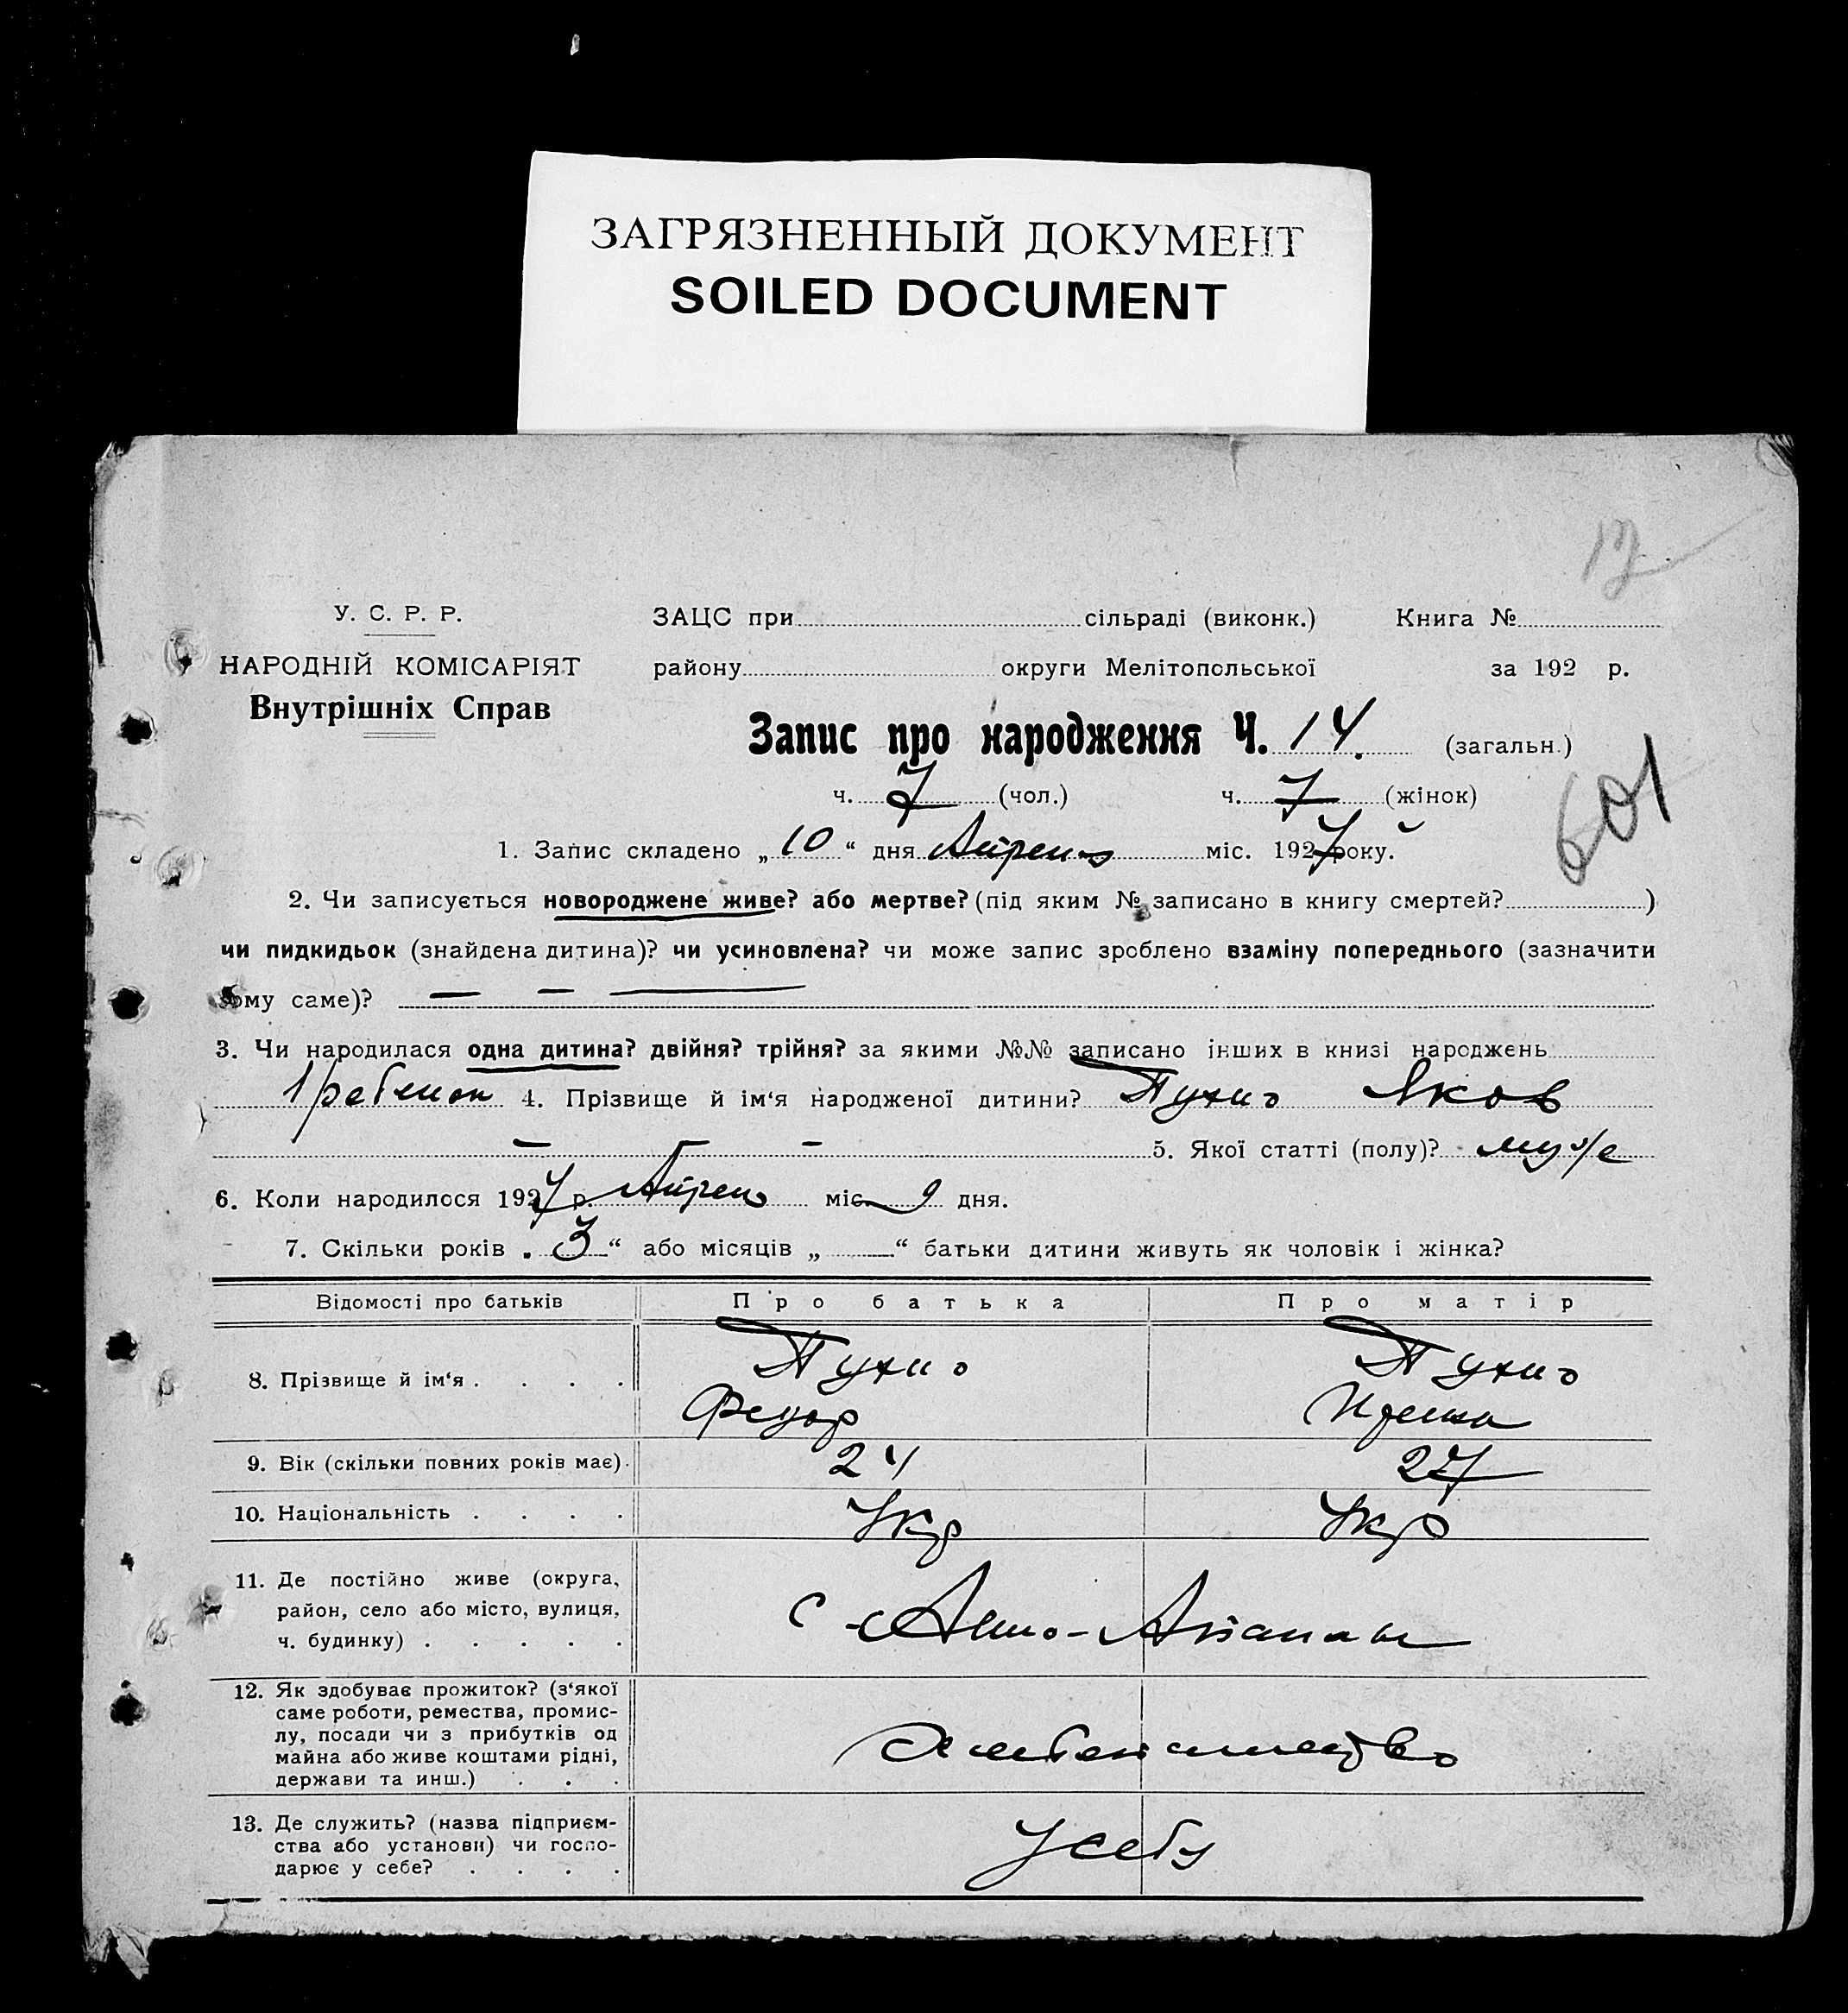 ЗАГРЯЗНЕННЫЙ ДОКУМЕНТ
SOILED DOCUMENT
У. С. Р. Р.
НАРОДНІЙ КОМІСАРІЯТ
Внутрішніх Справ
ЗАЦС при сільраді (виконк.) Книга №
району округи Мелітопольської за 192 р.
Запис про народження Ч. 14. (загальн.)
ч. 7 (чол.) ч. 7 (жінок)
601
1. Запис складено „ 10 “ дня Апреля міс. 1927 року.
2. Чи записується новороджене живе? або мертве? (під яким № записано в книгу смертей? )
чи пидкидьок (знайдена дитина)? чи усиновлена? чи може запис зроблено взаміну попереднього (зазначити
йому саме)? — — —
3. Чи народилася одна дитина? двійня? трійня? за якими №№ записано інших в книзі народжень
1 ребенок 4. Прізвище й ім‘я народженої дитини? Пухно Яков
— — — 5. Якої статті (полу)? муж
6. Коли народилося 1927 р. Апрель міс. 9 дня.
7. Скільки років „ 3 “ або місяців „ — “ батьки дитини живуть як чоловік і жінка?
Відомості про батьків Про батька Про матір
8. Прізвище й ім‘я . . . . Пухно Федор Пухно
9. Вік (скільки повних років має) . 24 27
10. Національність . . . . Укр Укр
11. Де постійно живе (округа,
район, село або місто, вулиця,
ч. будинку) . . . . .
с
12. Як здобуває прожиток? (з‘якої
саме роботи, ремества, промис-
лу, посади чи з прибутків од
майна або живе коштами рідні,
держави та инш.) . . .
Хлебопашество
13. Де служить? (назва підприєм-
ства або установи) чи госпо-
дарює у себе? . . . .
У себя